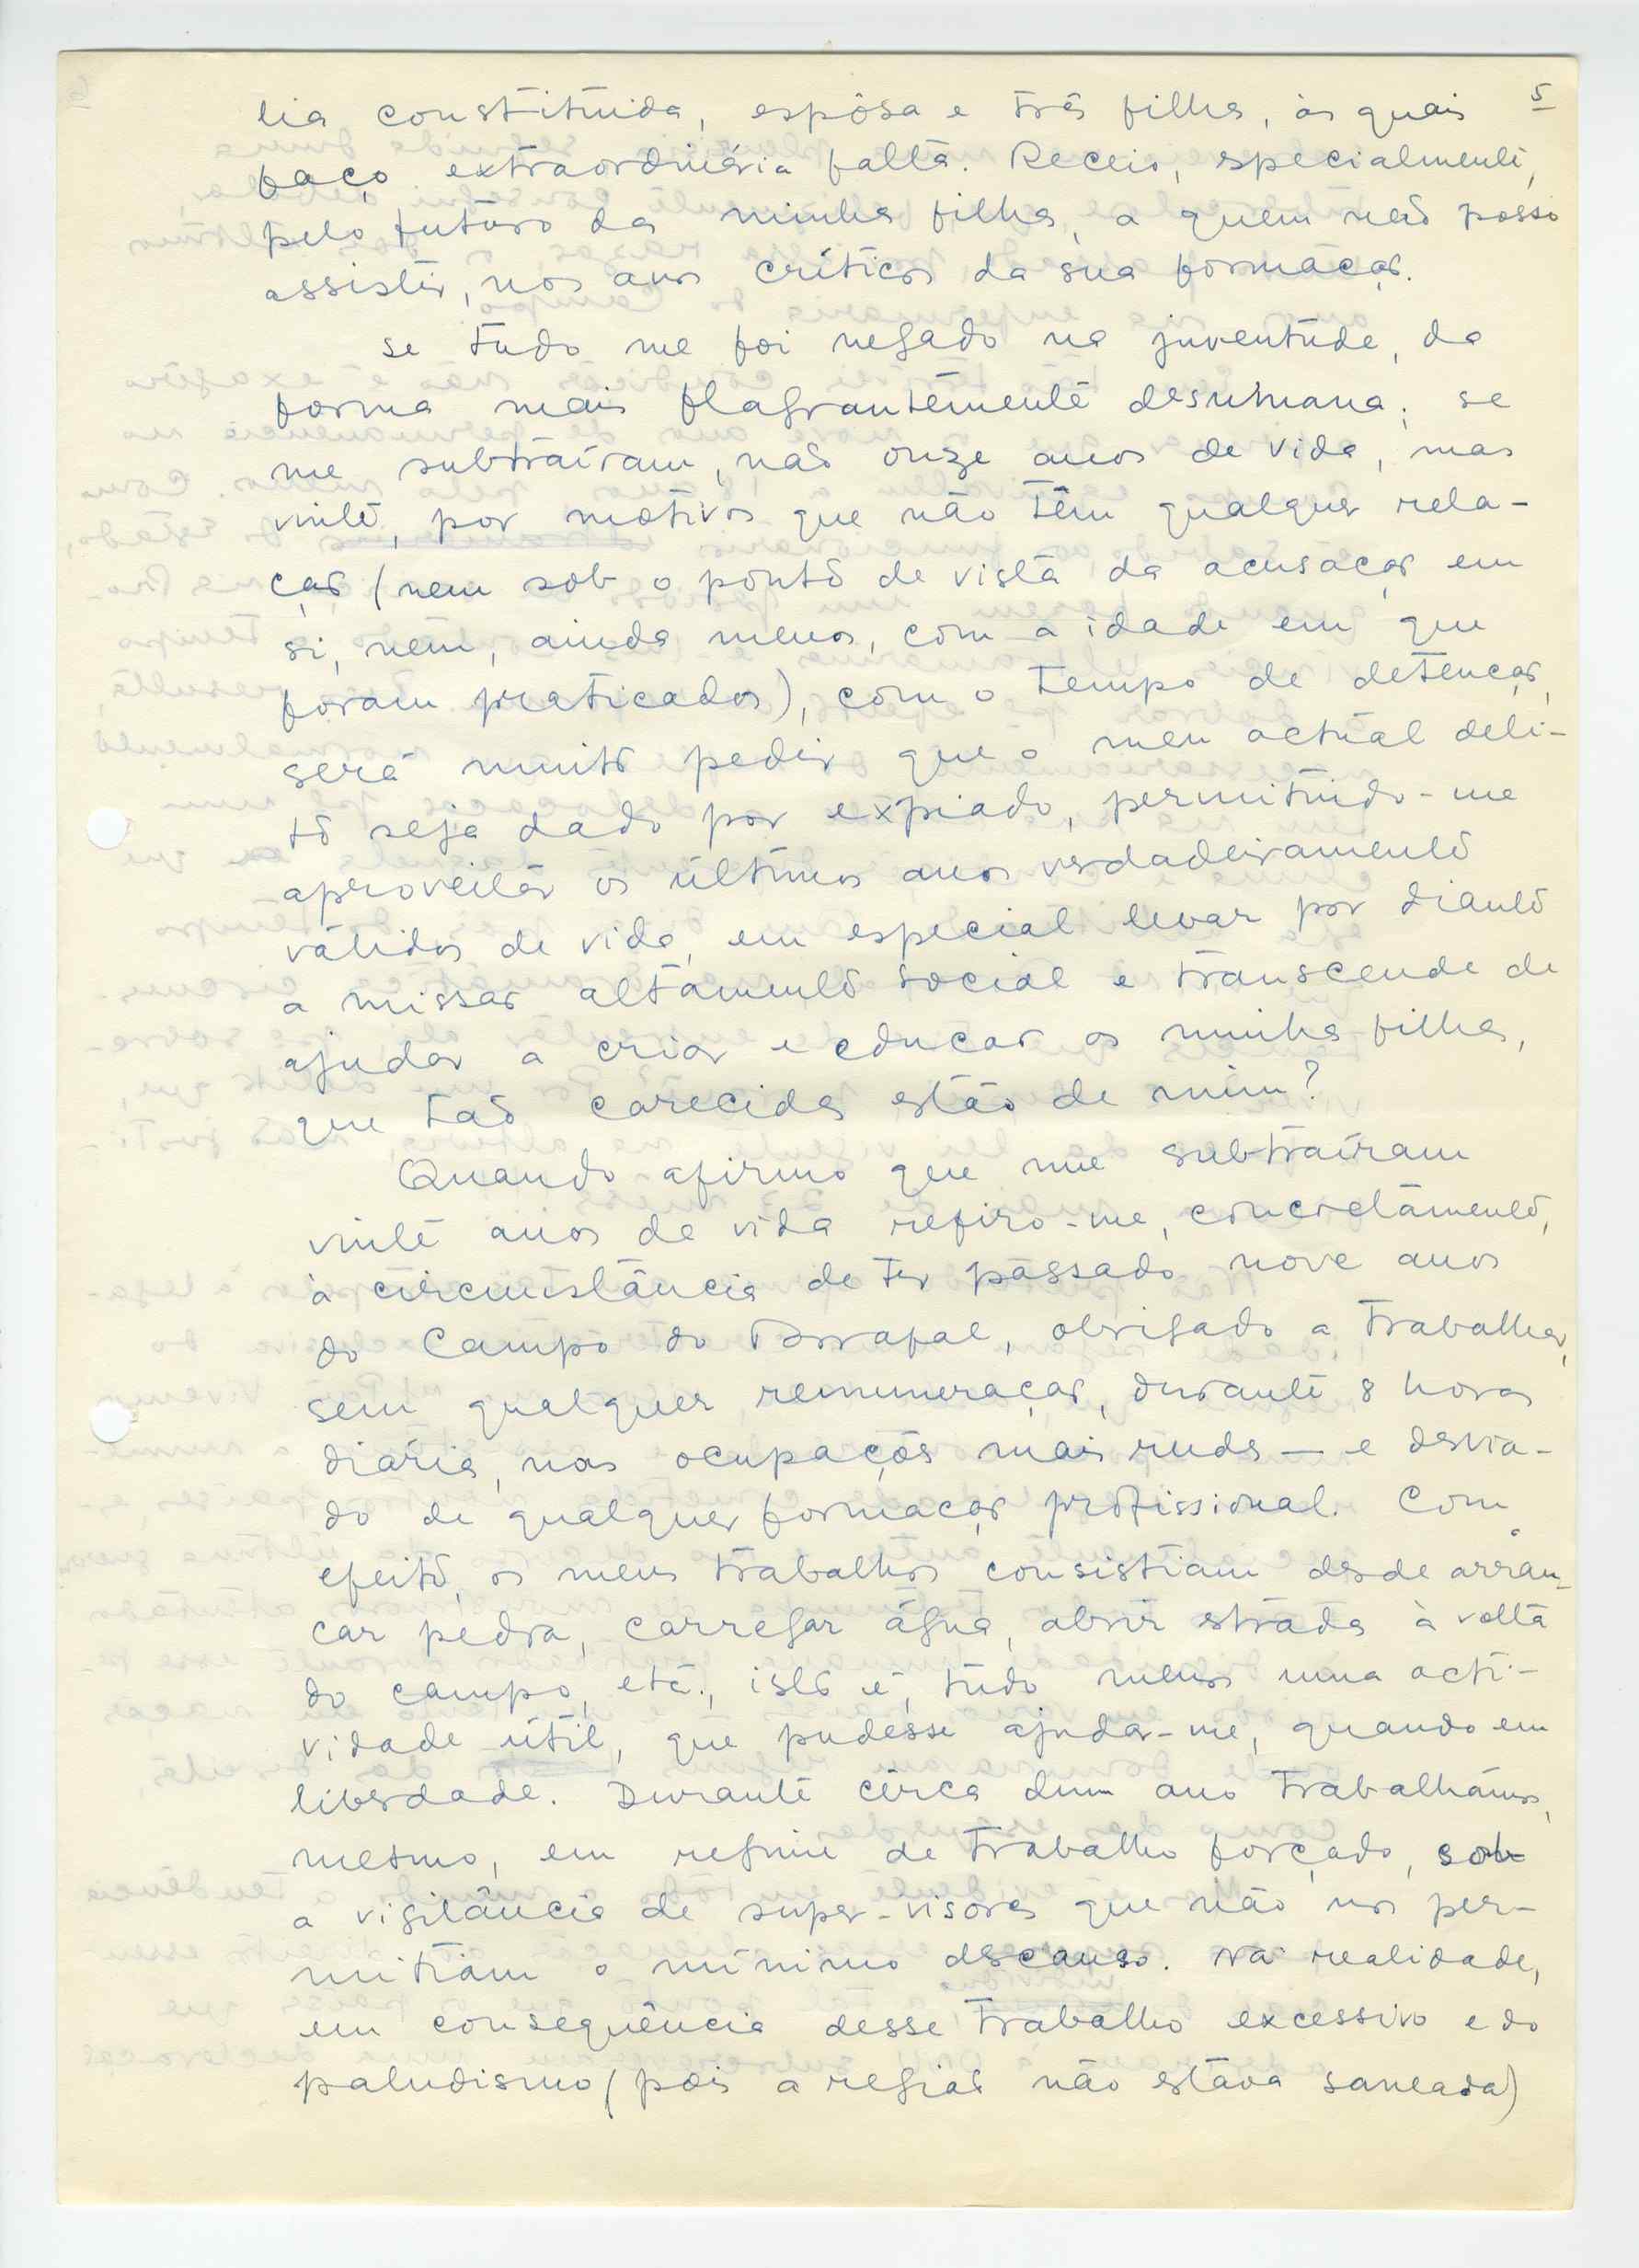 5
lia constituída, espôsa e três filhas, às quais
faço extraordinária falta. Receio, especialmente,
pelo futuro das minhas filhas, a quem não posso
assistir, nos anos críticos da sua formação.
Se tudo me foi negado na juventude, da
forma mais flagrantemente desumana; se
me subtraíram, não onze anos de vida, mas
vinte, por motivos que não têm qualquer rela-
ção (nem sob o ponto de vista da acusação em
si, nem, ainda menos, com a idade em que
foram praticados), com o tempo de detenção,
será muito pedir que o meu actual deli-
to seja dado por expiado, permitindo-me
aproveitar os últimos anos verdadeiramente
válidos de vida, em especial levar por diante
a missão altamente social e transcende de
ajudar a criar e educar as minhas filhas,
que tão carecidas estão de mim?
Quando afirmo que me subtraíram
vinte anos de vida refiro-me, concretamente,
à circunstância de ter passado nove anos
do Campo do Tarrafal, obrigado a trabalhar,
sem qualquer remuneração, durante 8 horas
diárias, nas ocupações mais rudes — e desvia-
do de qualquer formação profissional. Com
efeito, os meus trabalhos consistiam desde arran-
car pedra, carregar água, abrir estradas à volta
do campo, etc., isto é, tudo menos uma acti-
vidade útil, que pudesse ajudar-me, quando em
liberdade. Durante cêrca dum ano trabalhámos,
mesmo, em regime de trabalho forçado, sob
a vigilância de super-visores que não nos per-
mitiam o mínimo descanso. Na realidade,
em consequência desse trabalho excessivo e do
paludismo (pois a região não estava saneada)